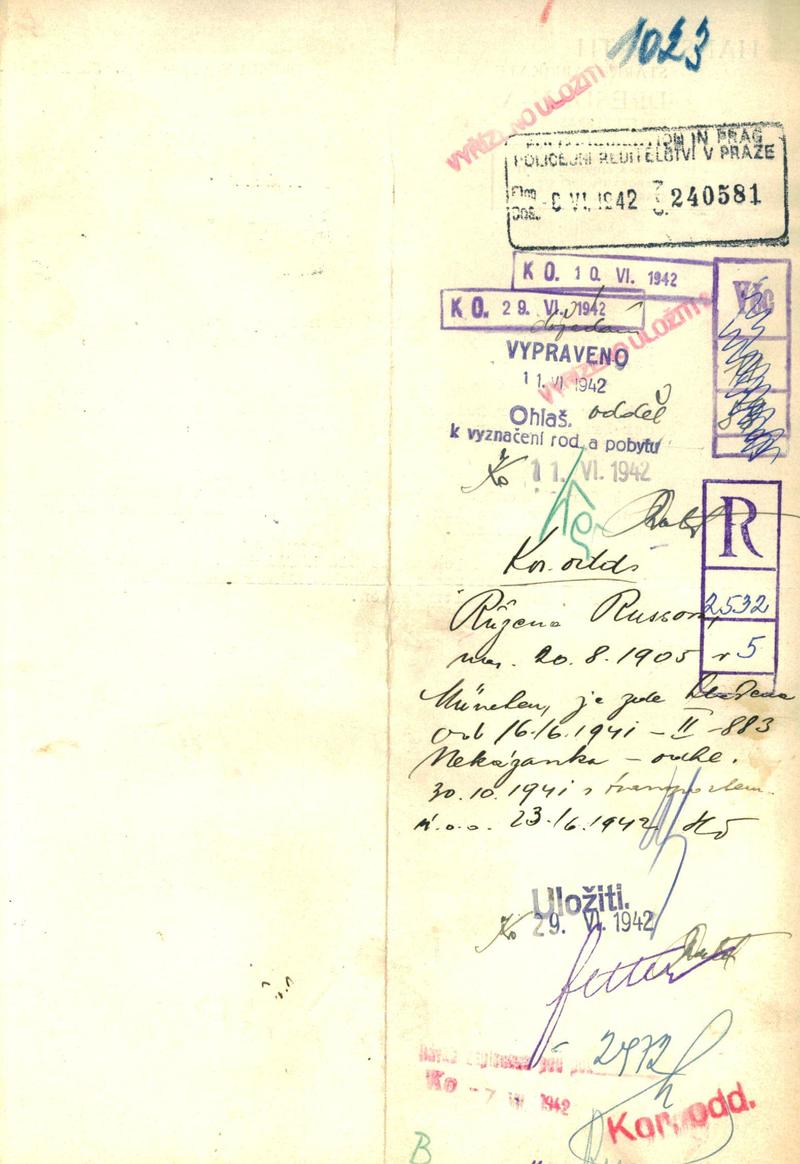 1023
VYŘÍZENO ULOŽITI
IN PRAG
POLICEJNÍ ŘEDITELSTVÍ V PRAZE
VI. 1942 240581
K O. 10. VI. 1942
K O. 29. VI. 1942
Věc
VYŘÍZENO ULOŽITI
VYPRAVENO
11. VI. 1942
Ohlaš. odděl
k vyznačení rod. a pobytu
Ko 11. VI. 1942
R
Kor. odd.
Růžena
2532
nar. 20.8.1905 v
5
München, je zde hlášena
od 16.6.1941 – II – 883
Nekázanka – odhl.
30.10.1941 s transportem.
23.6.1942
Uložiti.
Ko 29. VI. 1942
2472
Ko - 7 1942
Kor. odd.
B